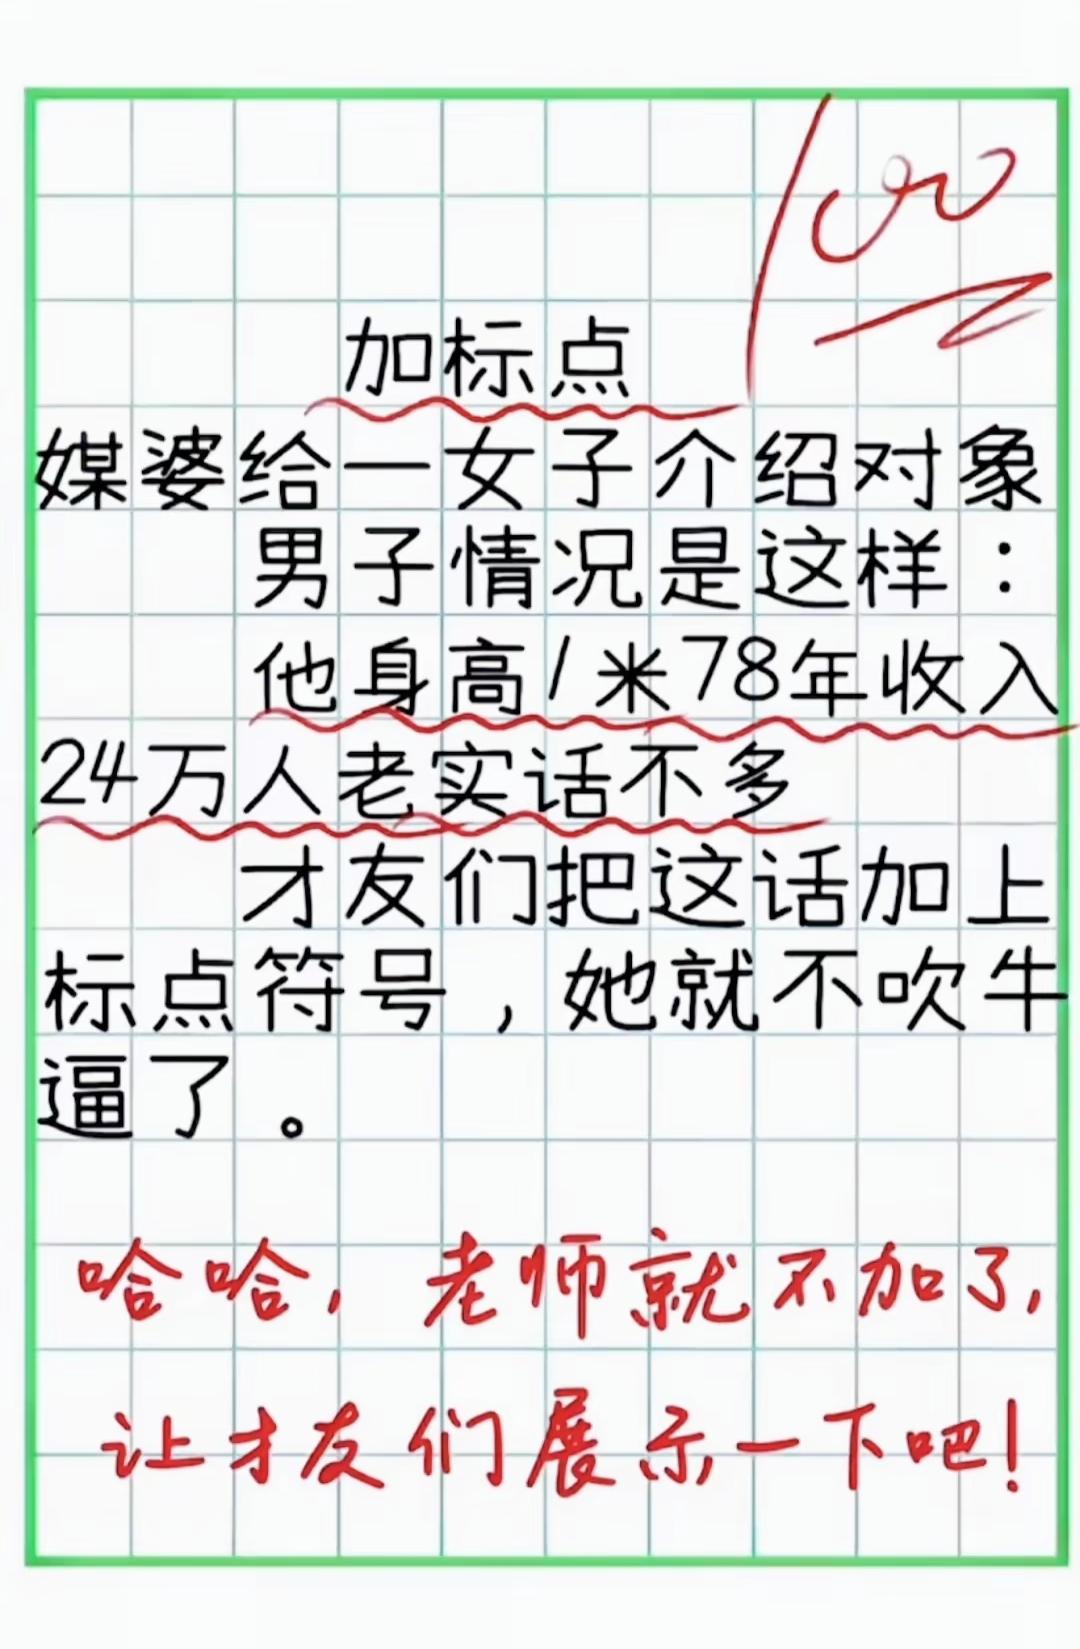 100
加标点
媒婆给一女子介绍对象
男子情况是这样：
他身高1米78年收入
24万人老实话不多
才友们把这话加上
标点符号，她就不吹牛
逼了。
哈哈，老师就不加了，
让才友们展示一下吧！